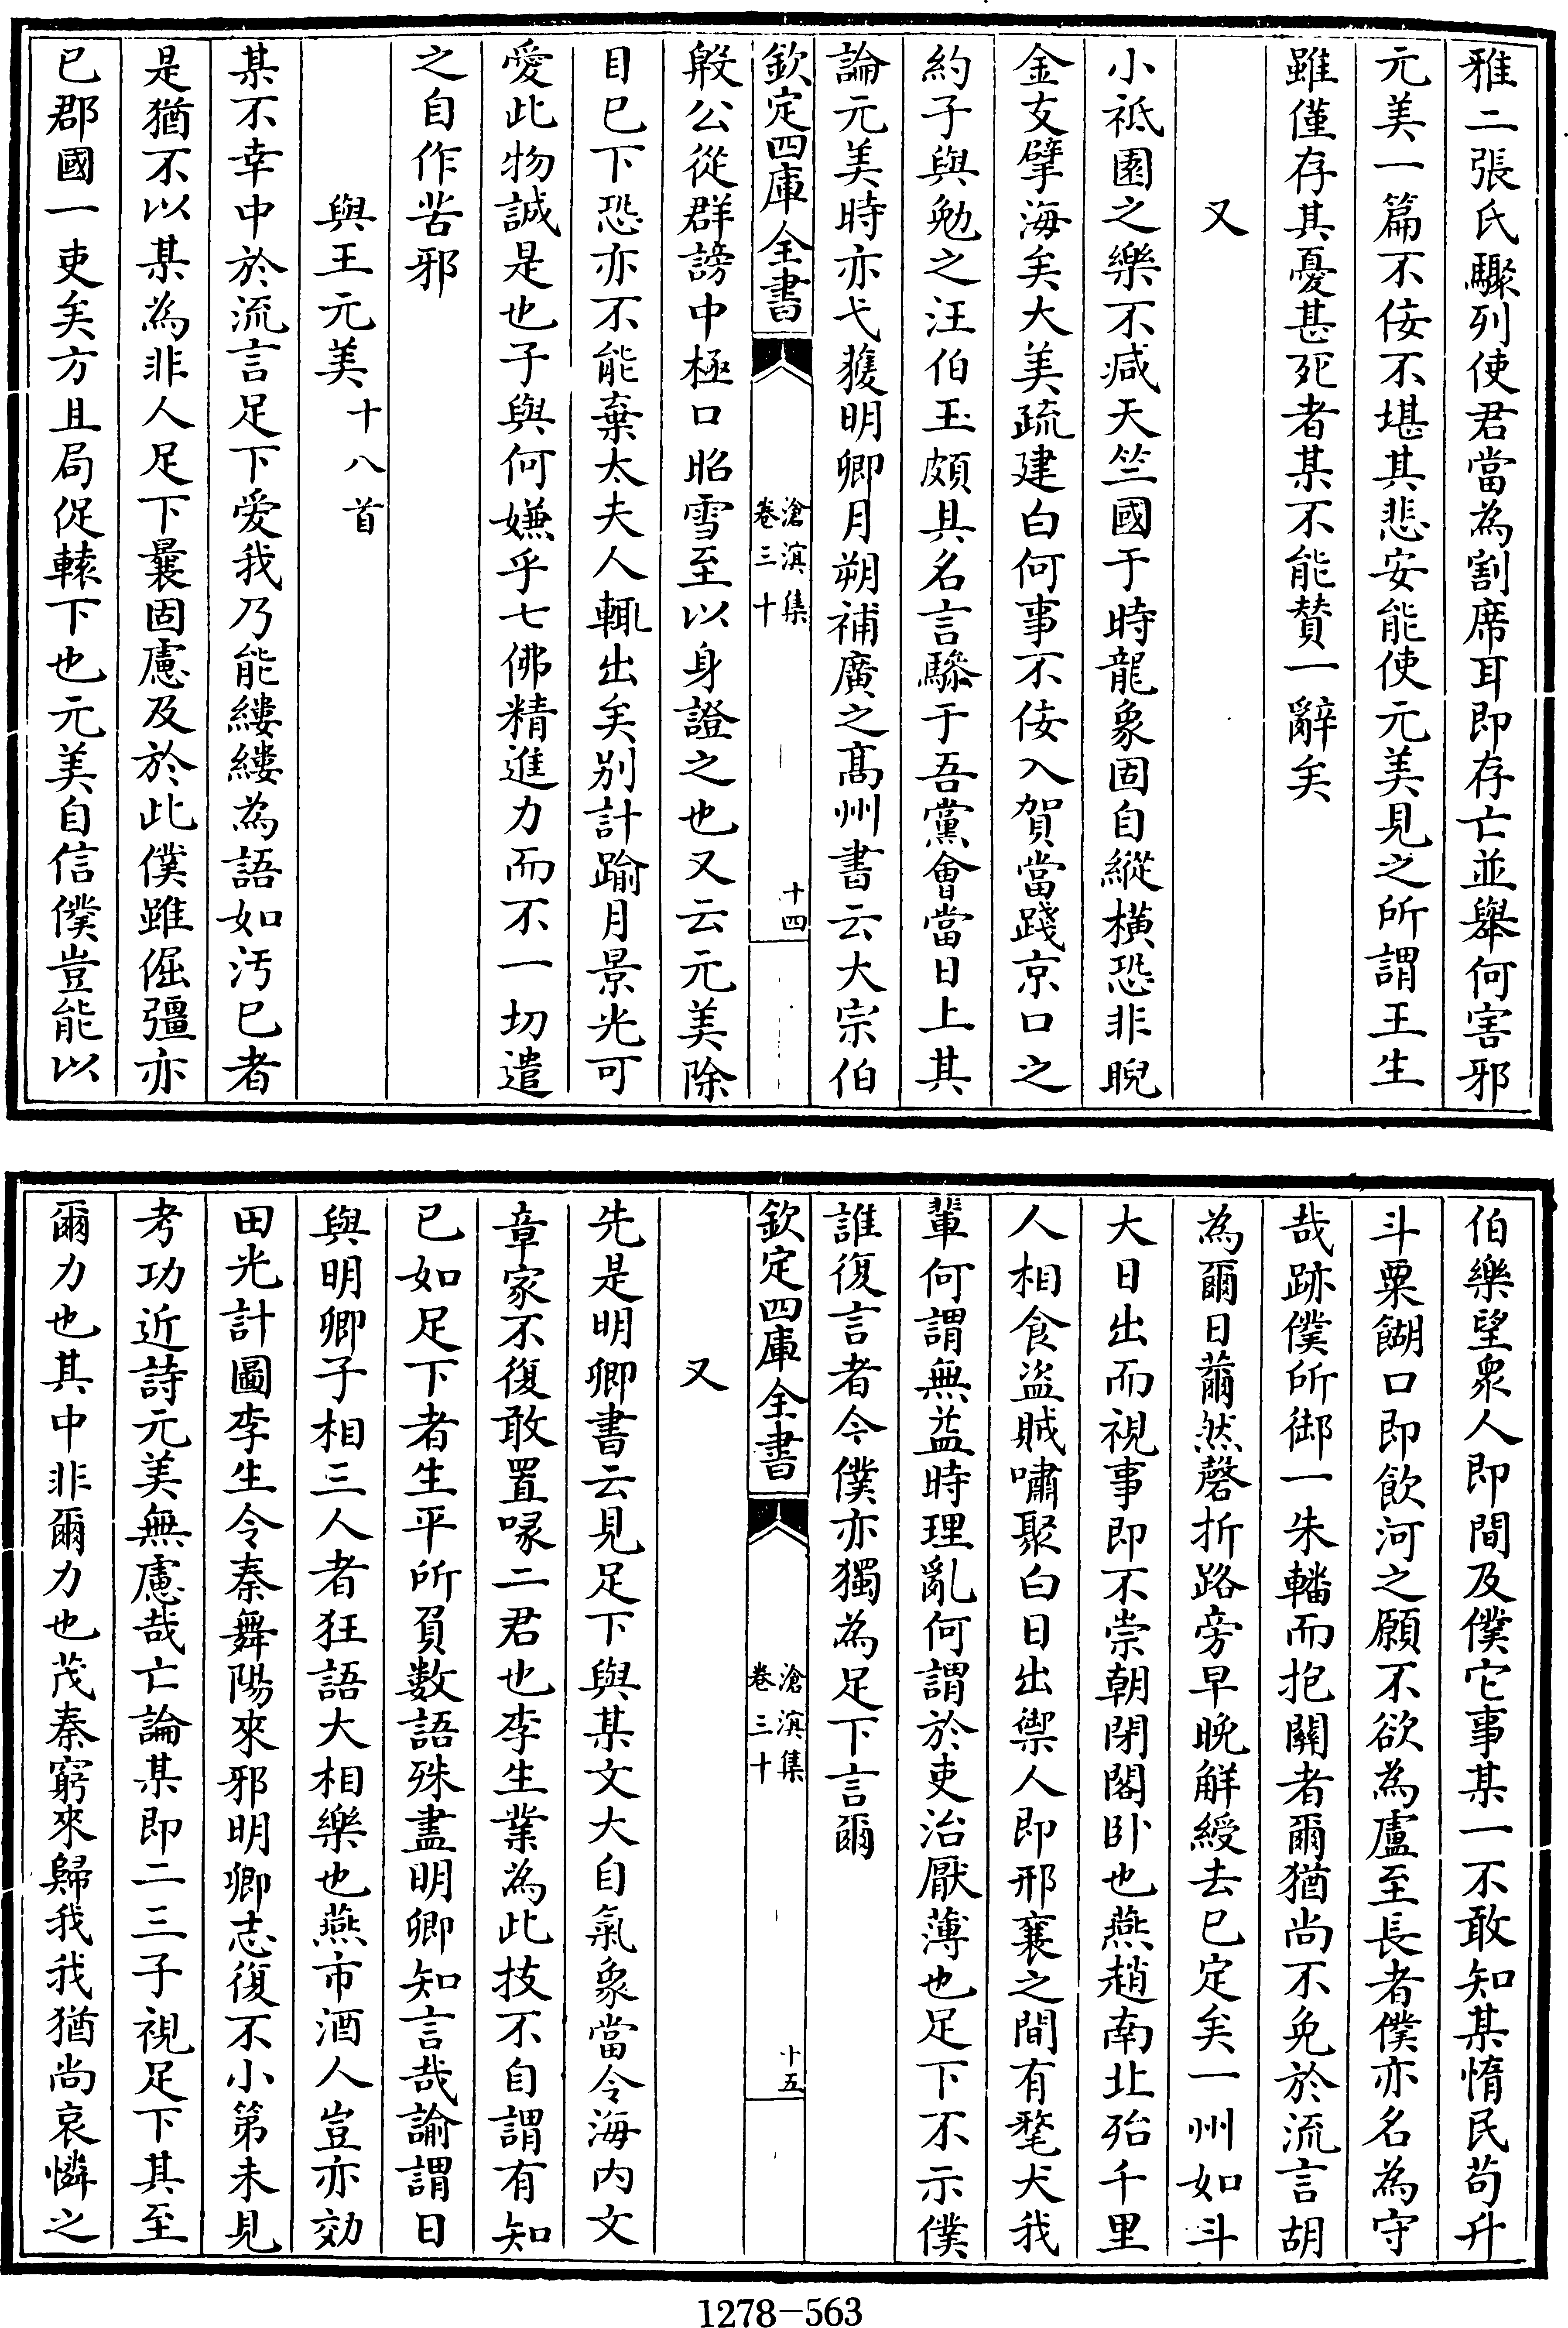 雅二張氏驟列使君當為割席耳即存亡並舉何害邪
元美一篇不佞不堪其悲安能使元美見之所謂王生
雖僅存其憂甚死者某不能賛一辭矣
又
小祗園之樂不減天竺國于時龍象固自縱橫恐非睨
金支擘海矣大美疏建白何事不佞入賀當踐京口之
約子與勉之汪伯玉頗具名言驂于吾黨會當日上其
論元美時亦弋獲明卿月朔補廣之髙州書云大宗伯
欽定四庫全書
滄溟集
卷三十
十四
殷公從群謗中極口昭雪至以身證之也又云元美除
目已下恐亦不能棄太夫人輒出矣别計踰月景光可
愛此物誠是也子與何嫌乎七佛精進力而不一切遣
之自作苦邪
與王元美十八首
某不幸中於流言足下愛我乃能縷縷為語如汚已者
是猶不以某為非人足下曩固慮及於此僕雖倔彊亦
已郡國一吏矣方且局促轅下也元美自信僕豈能以
伯樂望衆人即間及僕它事某一不敢知某惰民茍升
斗粟餬口即飲河之願不欲為盧至長者僕亦名為守
哉跡僕所御一朱轓而抱關者爾猶尚不免於流言胡
為爾日薾然磬折路旁早晚解綬去已定矣一州如斗
大日出而視事即不崇朝閉閣卧也燕趙南北殆千里
人相食盜賊嘯聚白日出禦人即邢襄之間有髦犬我
輩何謂無益時理亂何謂於吏治厭薄也足下不示僕
誰復言者今僕亦獨為足下言爾
欽定四庫全書
滄溟集
卷三十
十五
又
先是明卿書云見足下與某文大自氣象當令海内文
章家不復敢置喙二君也李生業為此技不自謂有知
已如足下者生平所負數語殊盡明卿知言哉諭謂日
與明卿子相三人者狂語大相樂也燕市酒人豈亦効
田光計圖李生令秦舞陽來邪明卿志復不小第未見
考功近詩元美無慮哉亡論某即二三子視足下其至
爾力也其中非爾力也茂秦窮來歸我我猶尚哀憐之
1278-563